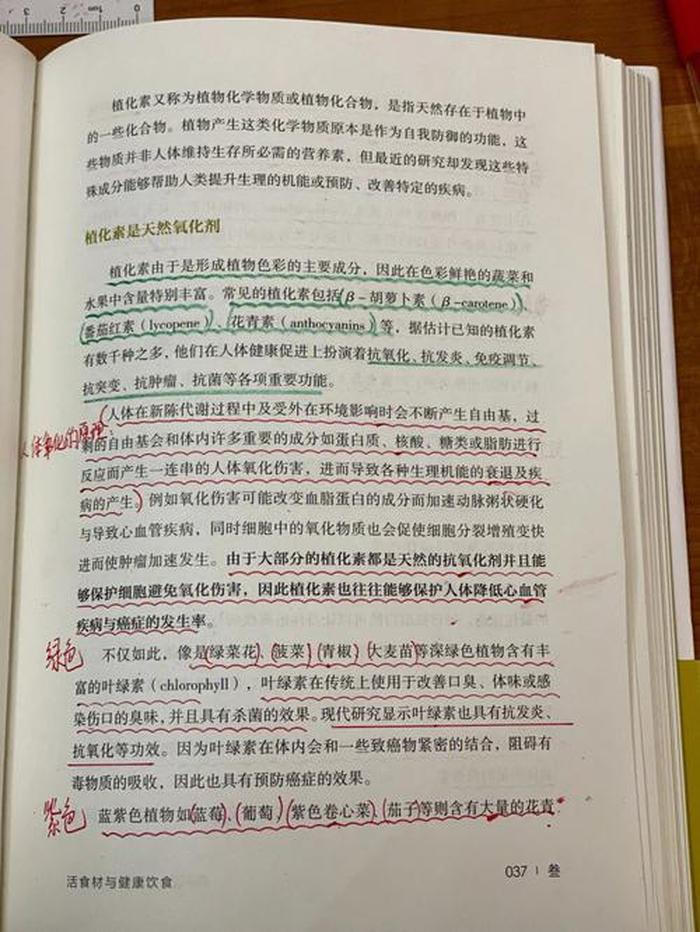 植化素又称为植物化学物质或植物化合物，是指天然存在于植物中
的一些化合物。植物产生这类化学物质原本是作为自我防御的功能，这
些物质并非人体维持生存所必需的营养素，但最近的研究却发现这些特
殊成分能够帮助人类提升生理的机能或预防、改善特定的疾病。
植化素是天然氧化剂
植化素由于是形成植物色彩的主要成分，因此在色彩鲜艳的蔬菜和
水果中含量特别丰富。常见的植化素包括β-胡萝卜素（β-carotene）、
番茄红素（lycopene）、花青素（anthocyanins）等，据估计已知的植化素
有数千种之多，他们在人体健康促进上扮演着抗氧化、抗发炎、免疫调节、
抗突变、抗肿瘤、抗菌等各项重要功能。
人体在新陈代谢过程中及受外在环境影响时会不断产生自由基，过
人体氧化的原理
剩的自由基会和体内许多重要的成分如蛋白质、核酸、糖类或脂肪进行
反应而产生一连串的人体氧化伤害，进而导致各种生理机能的衰退及疾
病的产生。例如氧化伤害可能改变血脂蛋白的成分而加速动脉粥状硬化
与导致心血管疾病，同时细胞中的氧化物质也会促使细胞分裂增殖变快
进而使肿瘤加速发生。由于大部分的植化素都是天然的抗氧化剂并且能
够保护细胞避免氧化伤害，因此植化素也往往能够保护人体降低心血管
疾病与癌症的发生率。
绿色
不仅如此，像是(绿菜花)、(菠菜)(青椒)(大麦苗)等深绿色植物含有丰
富的叶绿素（chlorophyll），叶绿素在传统上使用于改善口臭、体味或感
染伤口的臭味，并且具有杀菌的效果。现代研究显示叶绿素也具有抗发炎、
抗氧化等功效。因为叶绿素在体内会和一些致癌物紧密的结合，阻碍有
毒物质的吸收，因此也具有预防癌症的效果。
紫色
蓝紫色植物如(蓝莓)、(葡萄)(紫色卷心菜)、(茄子)等则含有大量的花青
活食材与健康饮食
037 | 叁